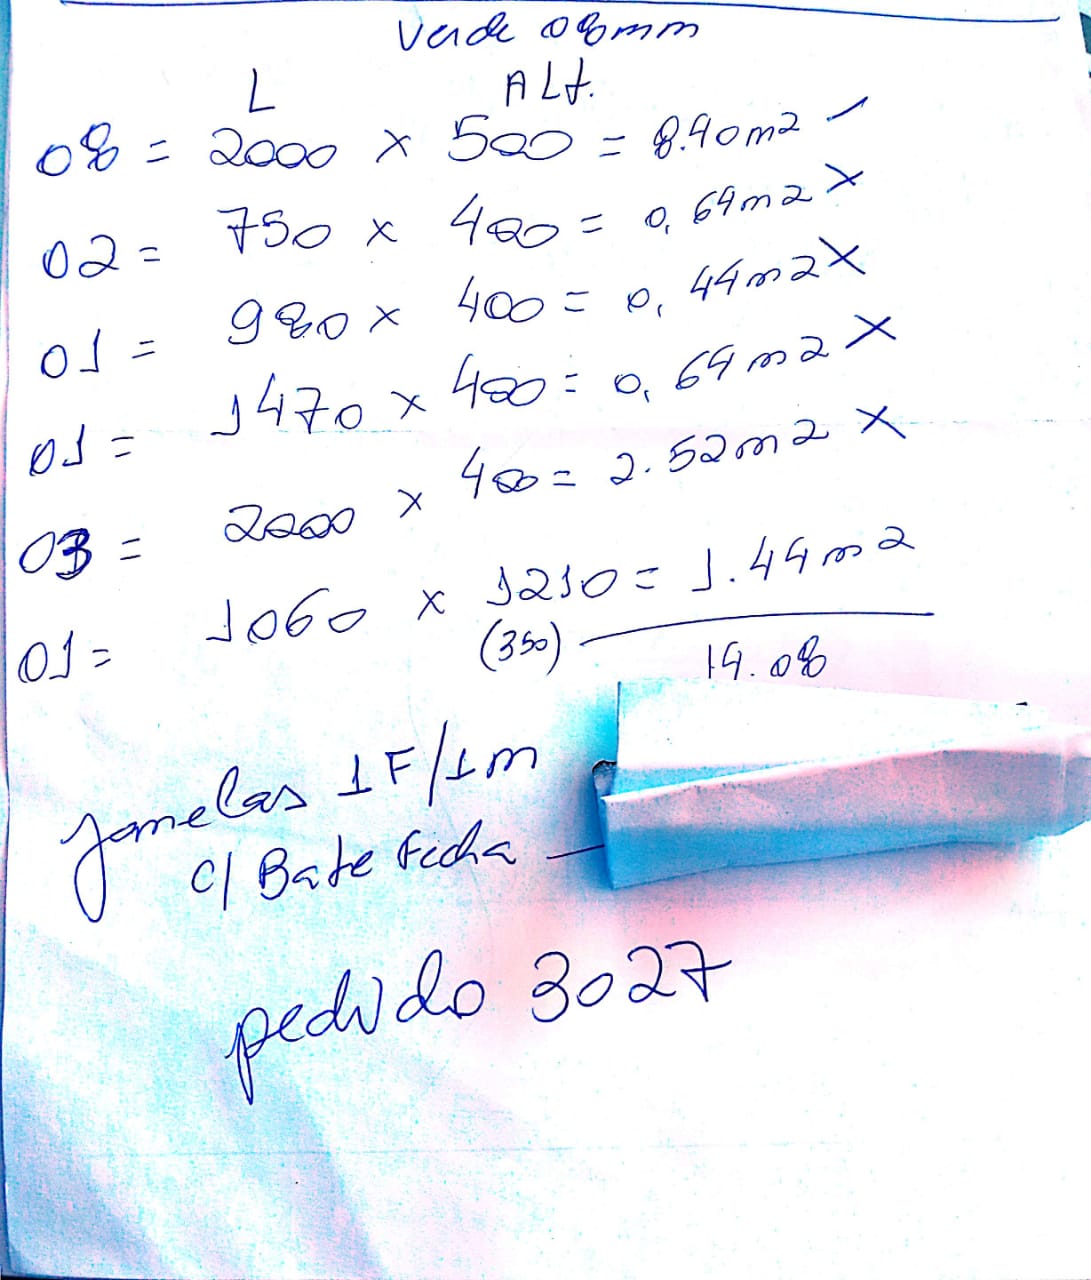 Verde 08mm
L ALT.
08 = 2000 x 500 = 8.40m2
02 = 750 x 400 = 0,64m2 X
01 = 980 x 400 = 0,44m2 X
01 = 1470 x 400 = 0,64m2 X
03 = 2000 x 400 = 2.52m2 X
01 = 1060 x 1210 = 1.44m2
(350) 14.08
Janelas 1F/1m
c/ Bate fecha
pedido 3027